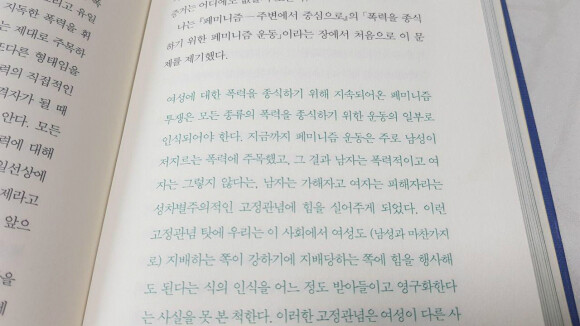 리고 유일
지독한 폭력을 휘
는 제대로 주목하
또다른 형태임을
력의 직접적인
격자가 될 때
안다. 모든
력에 대해
일선상에
제라고
앞으
을
에
증거는 어디에도
나는 『페미니즘―주변에서 중심으로』의 「폭력을 종식
하기 위한 페미니즘 운동」이라는 장에서 처음으로 이 문
제를 제기했다.
여성에 대한 폭력을 종식하기 위해 지속되어온 페미니즘
투쟁은 모든 종류의 폭력을 종식하기 위한 운동의 일부로
인식되어야 한다. 지금까지 페미니즘 운동은 주로 남성이
저지르는 폭력에 주목했고, 그 결과 남자는 폭력적이고 여
자는 그렇지 않다는, 남자는 가해자고 여자는 피해자라는
성차별주의적인 고정관념에 힘을 실어주게 되었다. 이런
고정관념 탓에 우리는 이 사회에서 여성도 (남성과 마찬가지
로) 지배하는 쪽이 강하기에 지배당하는 쪽에 힘을 행사해
도 된다는 식의 인식을 어느 정도 받아들이고 영구화한다
는 사실을 못 본 척한다. 이러한 고정관념은 여성이 다른 사